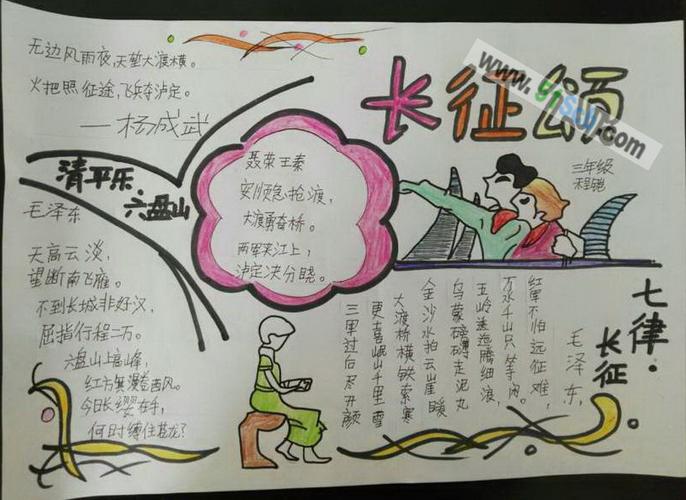 无边风雨夜,天堑大渡横。
火把照征途,飞兵夺泸定。
——杨成武
长征颂
www.ynsuu.com
三年级
清平乐
六盘山
毛泽东
天高云淡,
望断南飞雁。
不到长城非好汉,
屈指行程二万。
六盘山上高峰,
红旗漫卷西风。
今日长缨在手,
何时缚住苍龙?
聂荣王秦
安顺急抢渡,
大渡勇夺桥。
两军夹江上,
泸定决分晓。
七律·
长征
毛泽东,
红军不怕远征难,
万水千山只等闲。
五岭逶迤腾细浪,
乌蒙磅礴走泥丸
金沙水拍云崖暖
大渡桥横铁索寒
更喜岷山千里雪
三军过后尽开颜